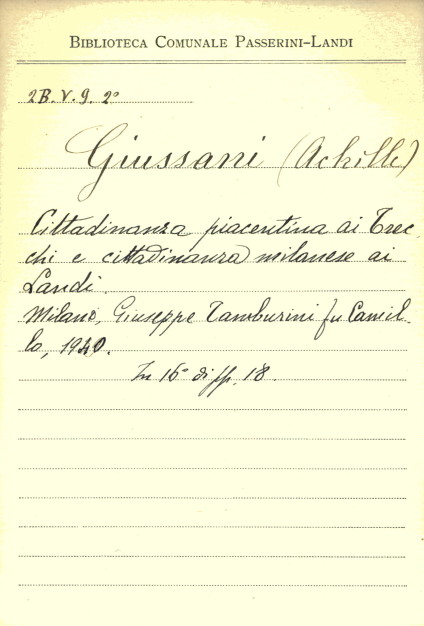 BIBLIOTECA COMUNALE PASSERINI-LANDI
2B.V.9.2°
Giussani (Achille)
Cittadinanza piacentina ai Trec
chi e cittadinanza milanese ai
Landi.
Milano, Giuseppe Tamburini fu Camil-
lo, 1940.
In 16° di pp. 18.